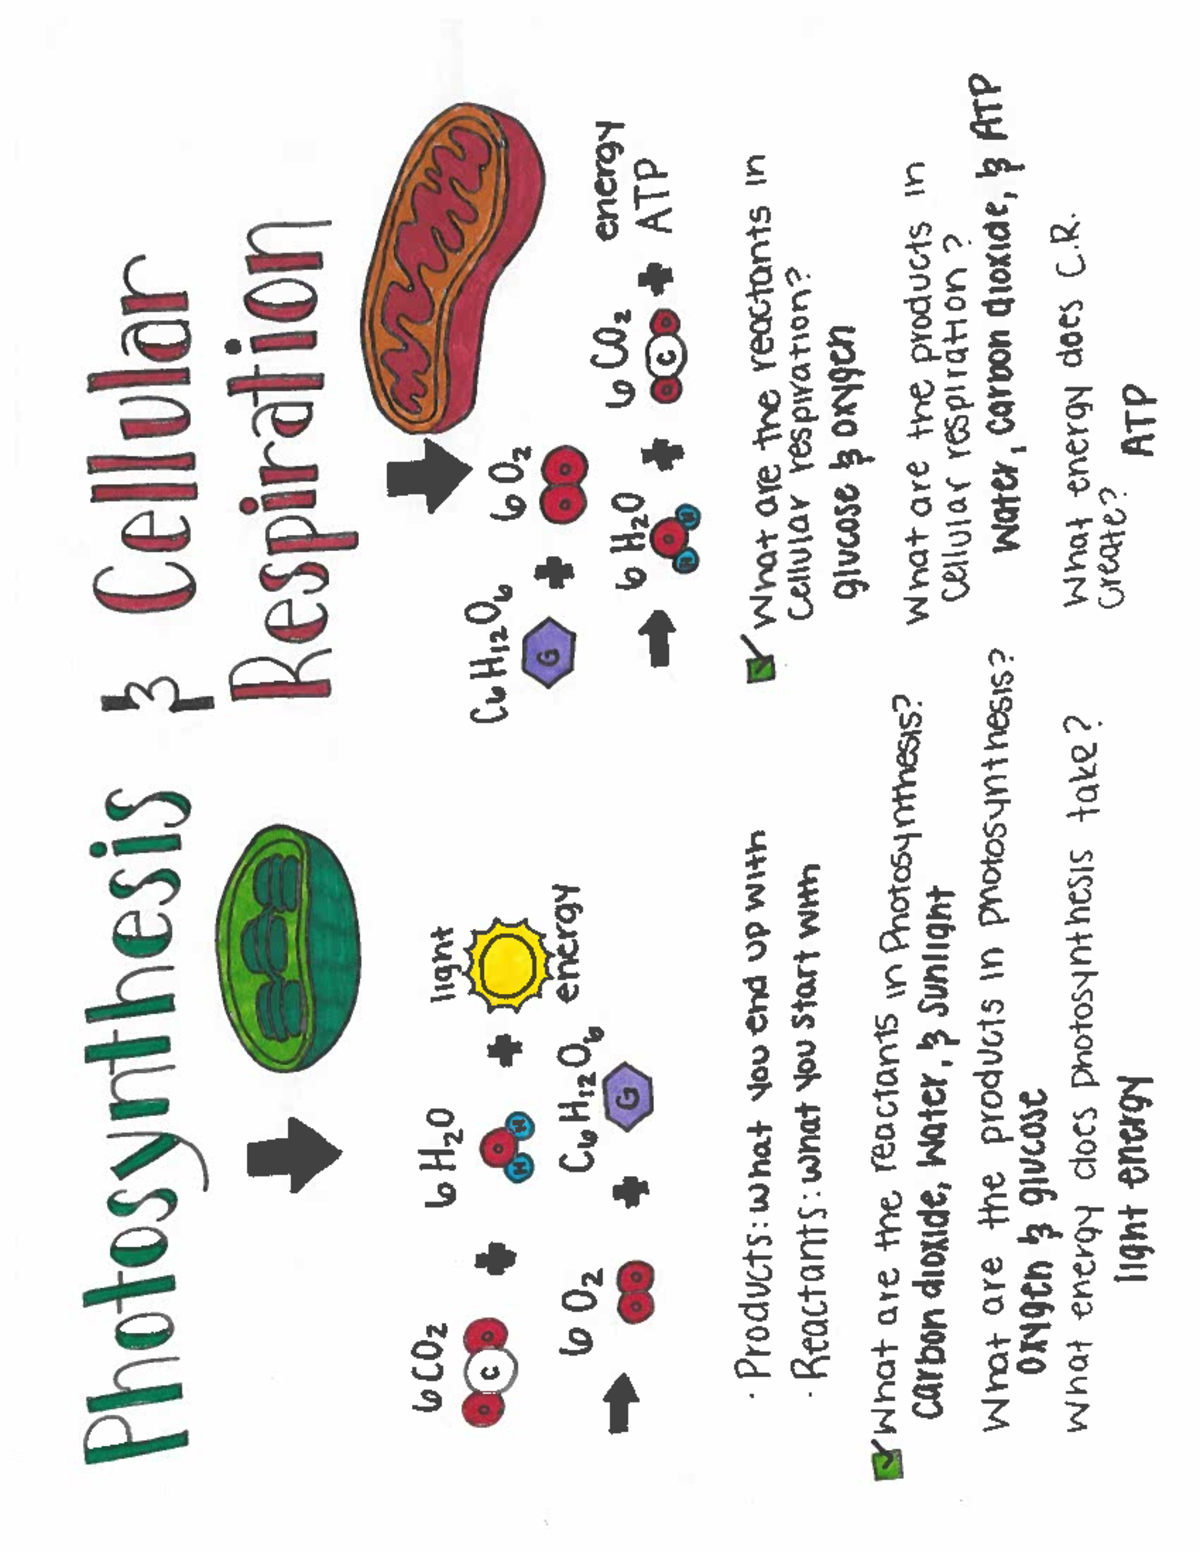 Photosynthesis & Cellular
Respiration
6CO2 + 6H2O + light
energy
→ 6O2 + C6H12O6
G
C
O
O
O
H
H
O
O
C6H12O6 + 6O2
→ 6H2O + 6CO2 + energy
ATP
G
O
O
O
H
H
O
C
O
· Products: what you end up with
· Reactants: what you start with
What are the reactants in Photosynthesis?
Carbon dioxide, Water, & Sunlight
What are the products in photosynthesis?
Oxygen & glucose
What energy does photosynthesis take?
light energy
What are the reactants in
Cellular respiration?
glucose & oxygen
What are the products in
Cellular respiration?
Water, carbon dioxide, & ATP
What energy does C.R.
Create?
ATP